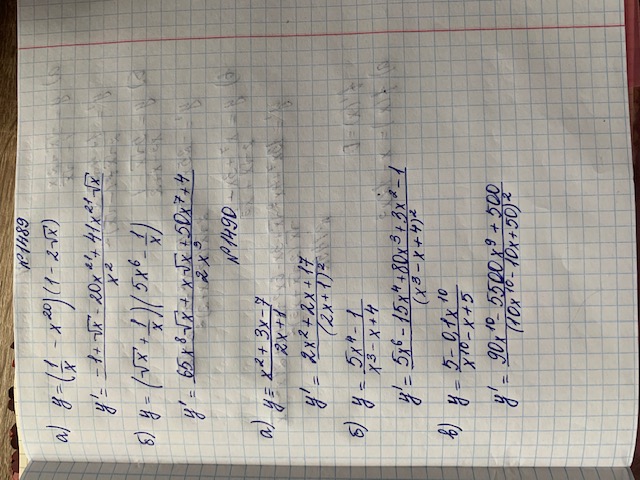 №1489
а) y=(1/x - x^20)(1-2√x)
y' = (-1+√x-20x^21+41x^21√x)/x^2
б) y=(√x+1/x)(5x^6-1/x)
y' = (65x^8√x+x√x+50x^7+4)/2x^3
№1490
а) y= (x^2+3x-7)/(2x+1)
y' = (2x^2+2x+17)/(2x+1)^2
б) y= (5x^4-1)/(x^3-x+4)
y'= (5x^6-15x^4+80x^3+3x^2-1)/(x^3-x+4)^2
в) y= (5-0,1x^10)/(x^10-x+5)
y' = (90x^10-5500x^9+500)/(10x^10-10x+50)^2